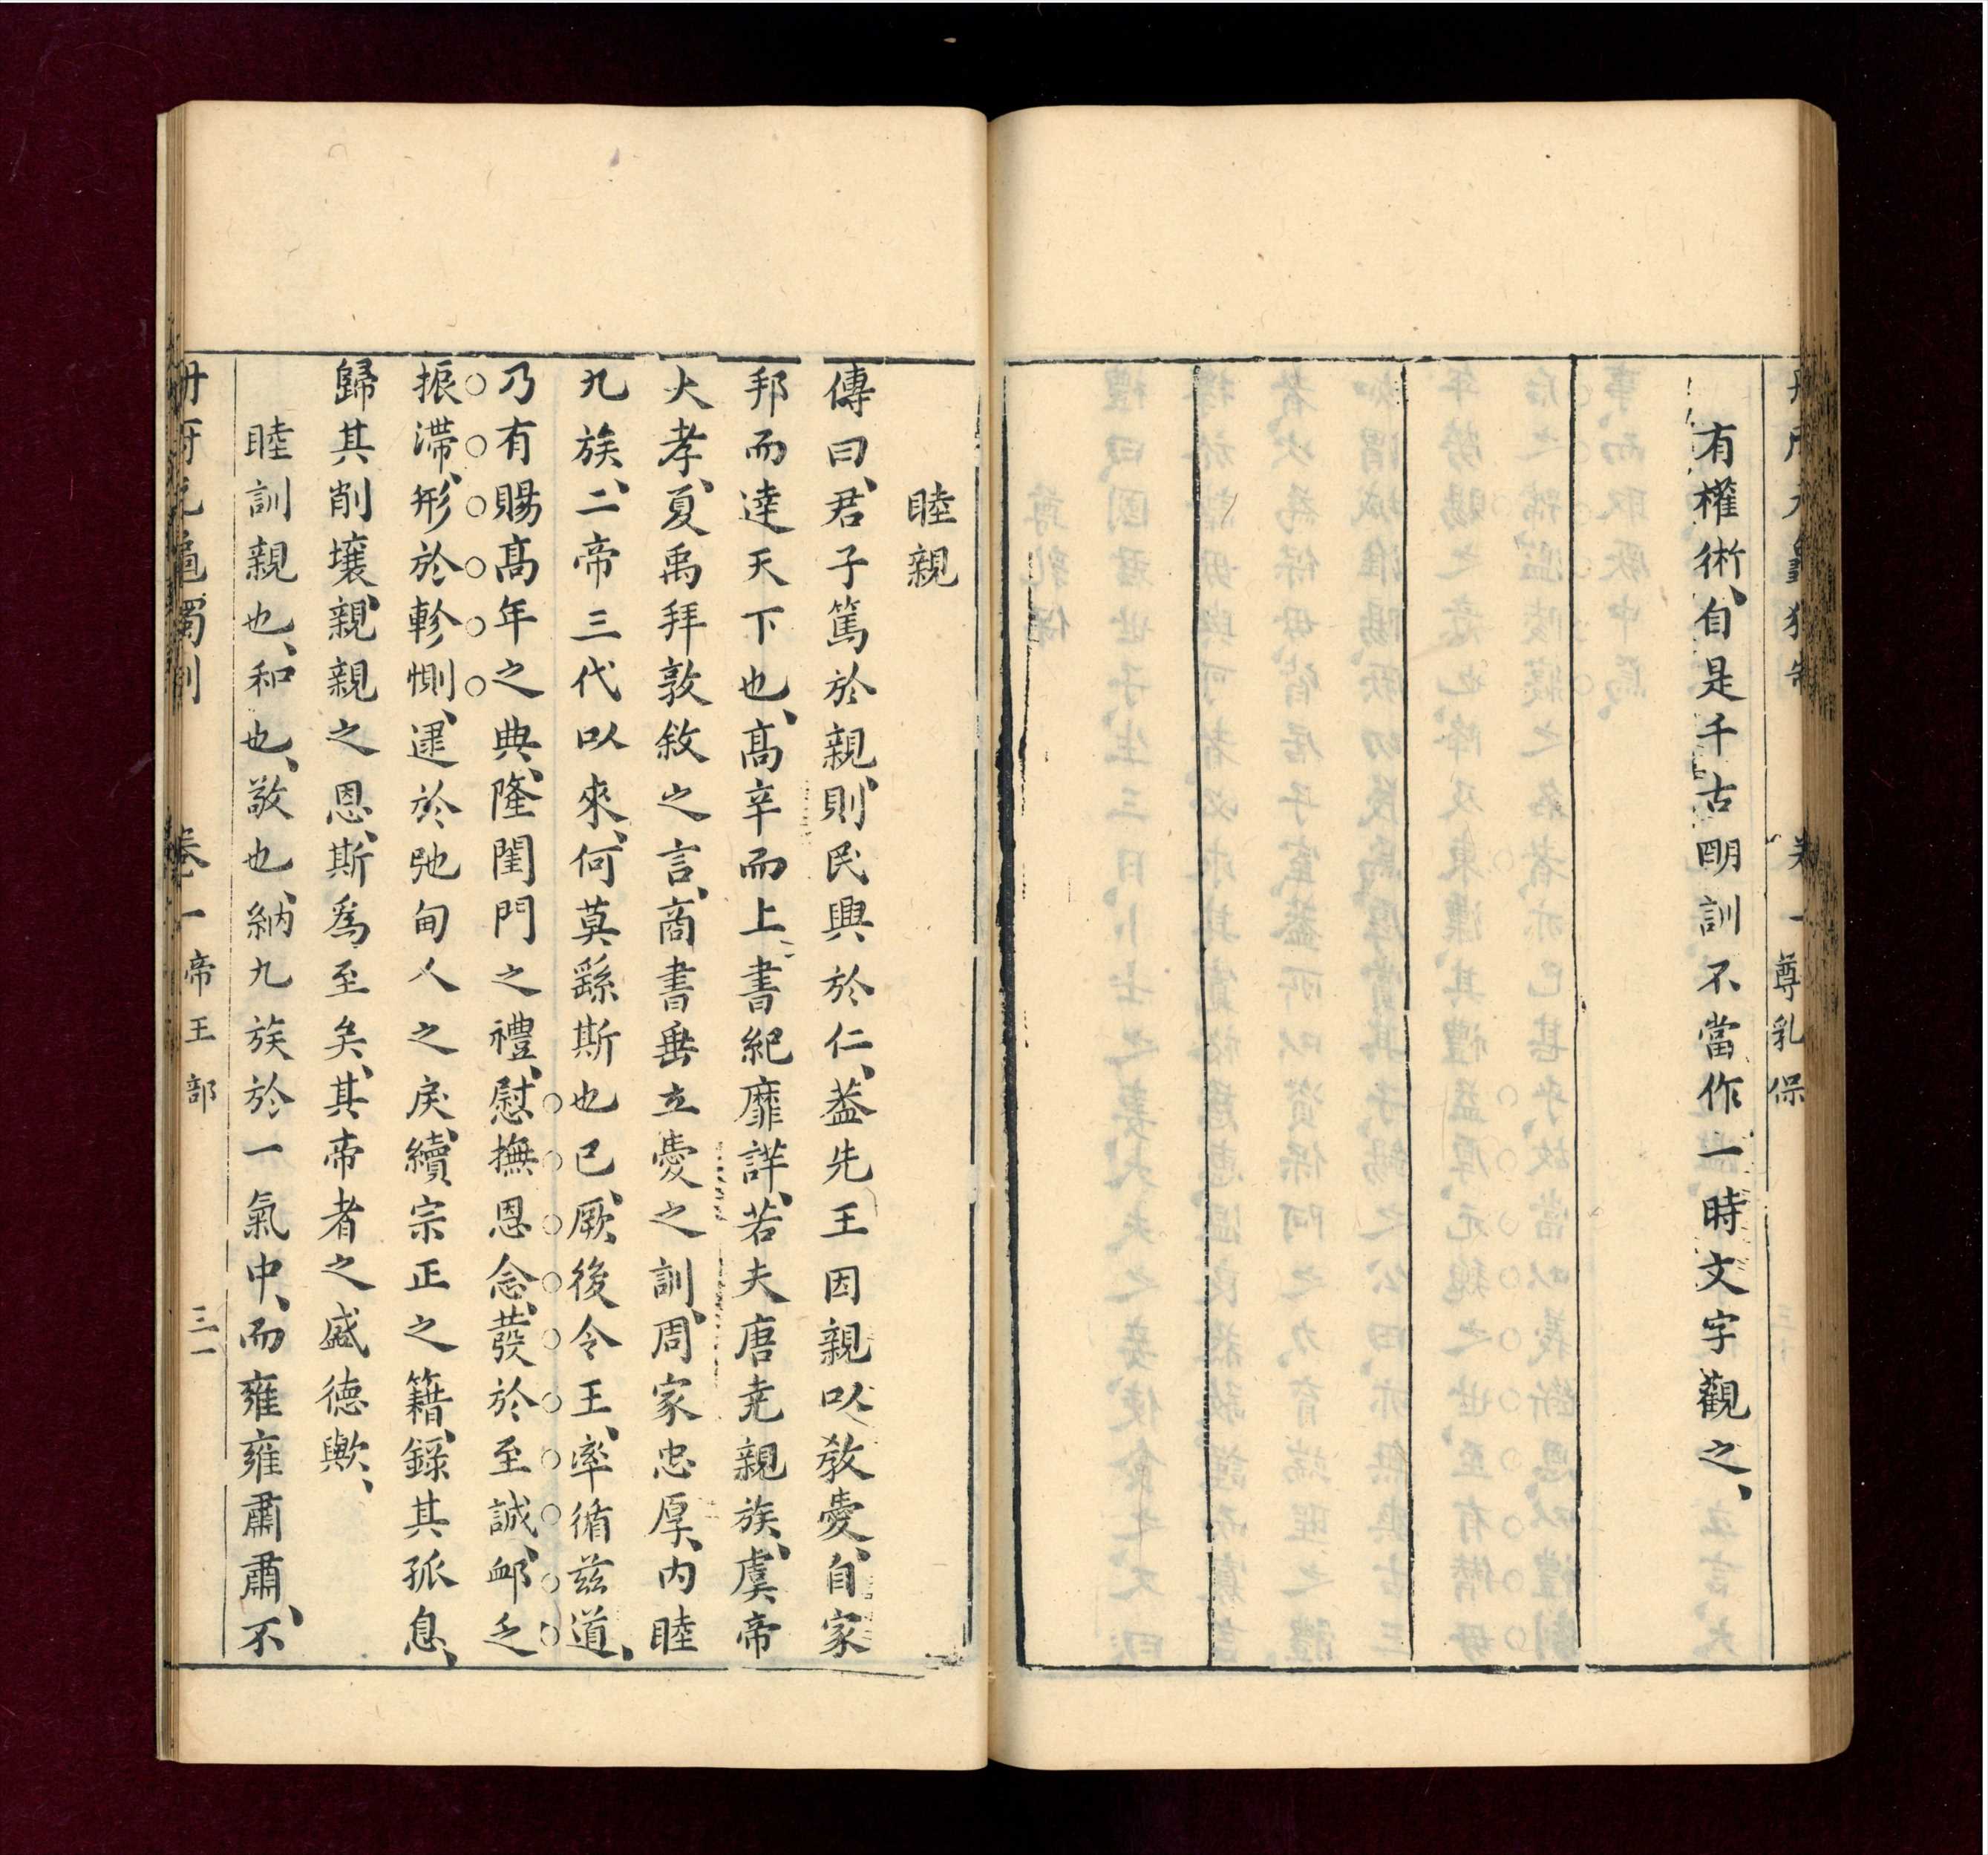 卷一 尊乳保
有權術、自是千古明訓不當作一時文字觀之、
睦親
傳曰、君子篤於親、則民興於仁、葢先王因親以敎愛、自家
邦而達天下也、髙辛而上書紀靡詳、若夫唐尭親族、虞帝
大孝、夏禹拜敦敘之言、商書垂立愛之訓、周家忠厚、内睦
九族、二帝三代以來、何莫繇斯也已、厥後令王、率循茲道、
乃有賜髙年之典、隆閨門之禮、慰撫恩念、發於至誠、䘏乏
振滯、形於軫惻、逮於弛甸人之戾、續宗正之籍、錄其孤息、
歸其削壤、親親之恩、斯爲至矣、其帝者之盛德歟、
睦訓親也、和也、敬也、納九族於一氣中、而雍雍肅肅、不
冊府元龜獨制 卷一 帝王部 三一